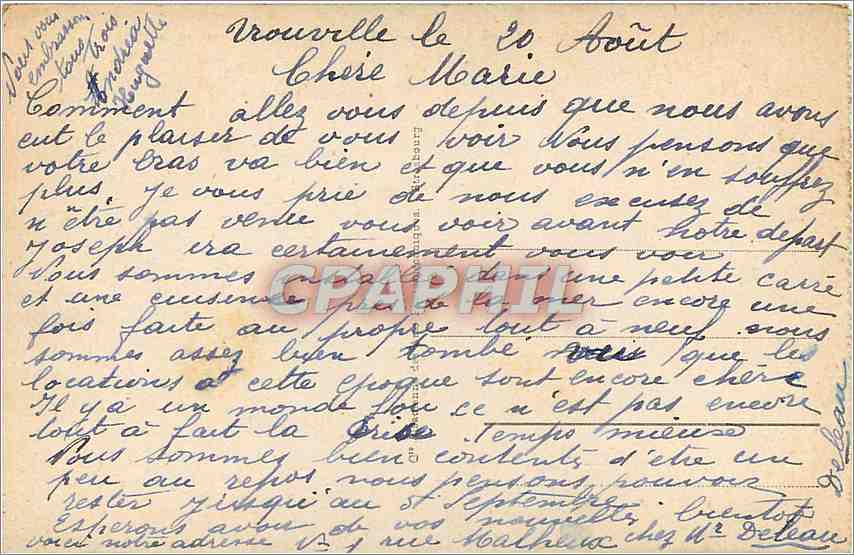 Trouville le 20 Août
Chère Marie
Comment allez vous depuis que nous avons
eut le plaiser de vous voir Nous pensons que
votre bras va bien et que vous n'en souffrez
plus, je vous prie de nous excusez de
n'être pas venu vous voir avant notre depart
Joseph ira certainement vous voir
Nous sommes dans une petite carré
et une cuisine près de la mer encore une
fois faite au propre tout à neuf nous
sommes assez bien tombé que les
locations à cette epoque sont encore chère
Il y a un monde fou ce n'est pas encore
tout à fait la Crise. Temps mieuse
Nous sommes bien contents d'etre un
peu au repos nous pensons pouvoir
rester jusqu'au Septembre
Esperons avoir de vos nouvelles bientot
voici notre adresse rue Malheux chez Mr Deleau
Deleau
Nous vous
embrassons
tous trois
Andréa
Huguette
CPAPHIL
Strasbourg